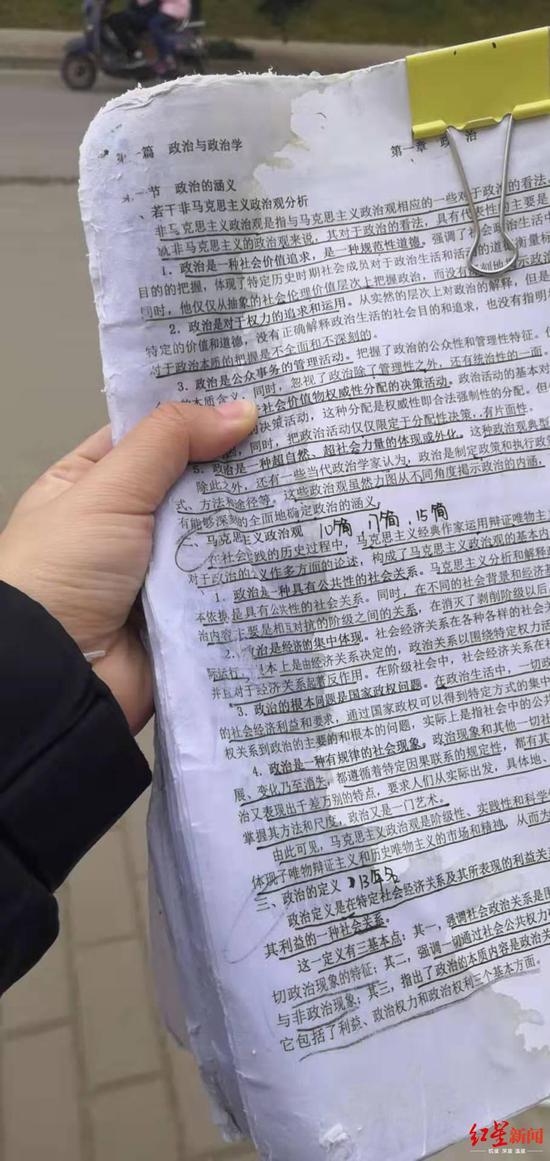 一篇 政治与政治学
第一章 政 治
一节 政治的涵义
、若干非马克思主义政治观分析
非马克思主义政治观是指与马克思主义政治观相应的一些对于政治的看法
就非马克思主义的政治观来说，其对于政治的看法，具有代表性的主要是
1．政治是一种社会价值追求，是一种规范性道德。强调了
目的的把握，体现了特定历史时期社会成员对于政治生活和活
同时，他仅仅从抽象的社会伦理价值层次上把握政治，而没有
2．政治是对于权力的追求和运用。从实然的层次上对政治的解释，但是
特定的价值和道德，没有正确解释政治生活的社会目的和追求，也没有指明
对于政治本质的把握是不全面和不深刻的。
3．政治是公众事务的管理活动。把握了政治的公众性和管理性特征。
的本质含义，同时，忽视了政治除了管理性之外，还有统治性的一面。
社会价值物权威性分配的决策活动。政治活动的基本对
决策活动，这种分配是权威性即合法强制性的分配。但
同时，把政治活动仅仅限定于分配性决策，有片面性。
5．政治是一种超自然、超社会力量的体现或外化。这种政治观典型
除此之外，还有一些当代政治学家认为，政治是制定政策和执行政
式、方法和途径等。这些政治观虽然力图从不同角度揭示政治的内涵，
有能够深刻的全面地确定政治的涵义。
、马克思主义政治观 10简，17简，15简
在社会实践的历史过程中，马克思主义经典作家运用辩证唯物主
对于政治的含义作多方面的论述，构成了马克思主义政治观的基本内
1．政治是一种具有公共性的社会关系。马克思主义分析和解释
不依据是具有公共性的社会关系。同时，在不同的社会背景和经济基
治内容上要是相互对抗的阶级之间的关系，在消灭了剥削阶级以后
2．政治是经济的集中体现。社会经济关系在各种各样的社会关
本上是由经济关系决定的，政治关系以围绕特定权力活
并且对于经济关系起着反作用。在阶级社会中，社会经济关系在
3．政治的根本问题是国家政权问题。在政治生活中，一切政
的社会经济利益和要求，通过国家政权可以得到特定方式的集中
权关系到政治的主要的和根本的问题，实际上是指社会中的公
4．政治是一种有规律的社会现象。政治现象和其他一切社
展、变化乃至消失，都遵循着特定因果联系的规定性，都有其
治又表现出千差万别的特点，要求人们从实际出发，具体地、
掌握其方法和尺度，政治又是一门艺术。
由此可见，马克思主义政治观是阶级性、实践性和科学
体现了唯物辩证主义和历史唯物主义的市场和精神，从而为
三、政治的定义 13年名
政治定义是在特定社会经济关系及其所表现的利益关
其利益的一种社会关系。
这一定义有三基本点：其一，强调社会政治关系是
切政治现象的特征；其二，强调一切通过社会公共权力
与非政治现象；其三，指出了政治的本质内容是政治关
它包括了利益、政治权力和政治权利三个基本方面。
红星新闻